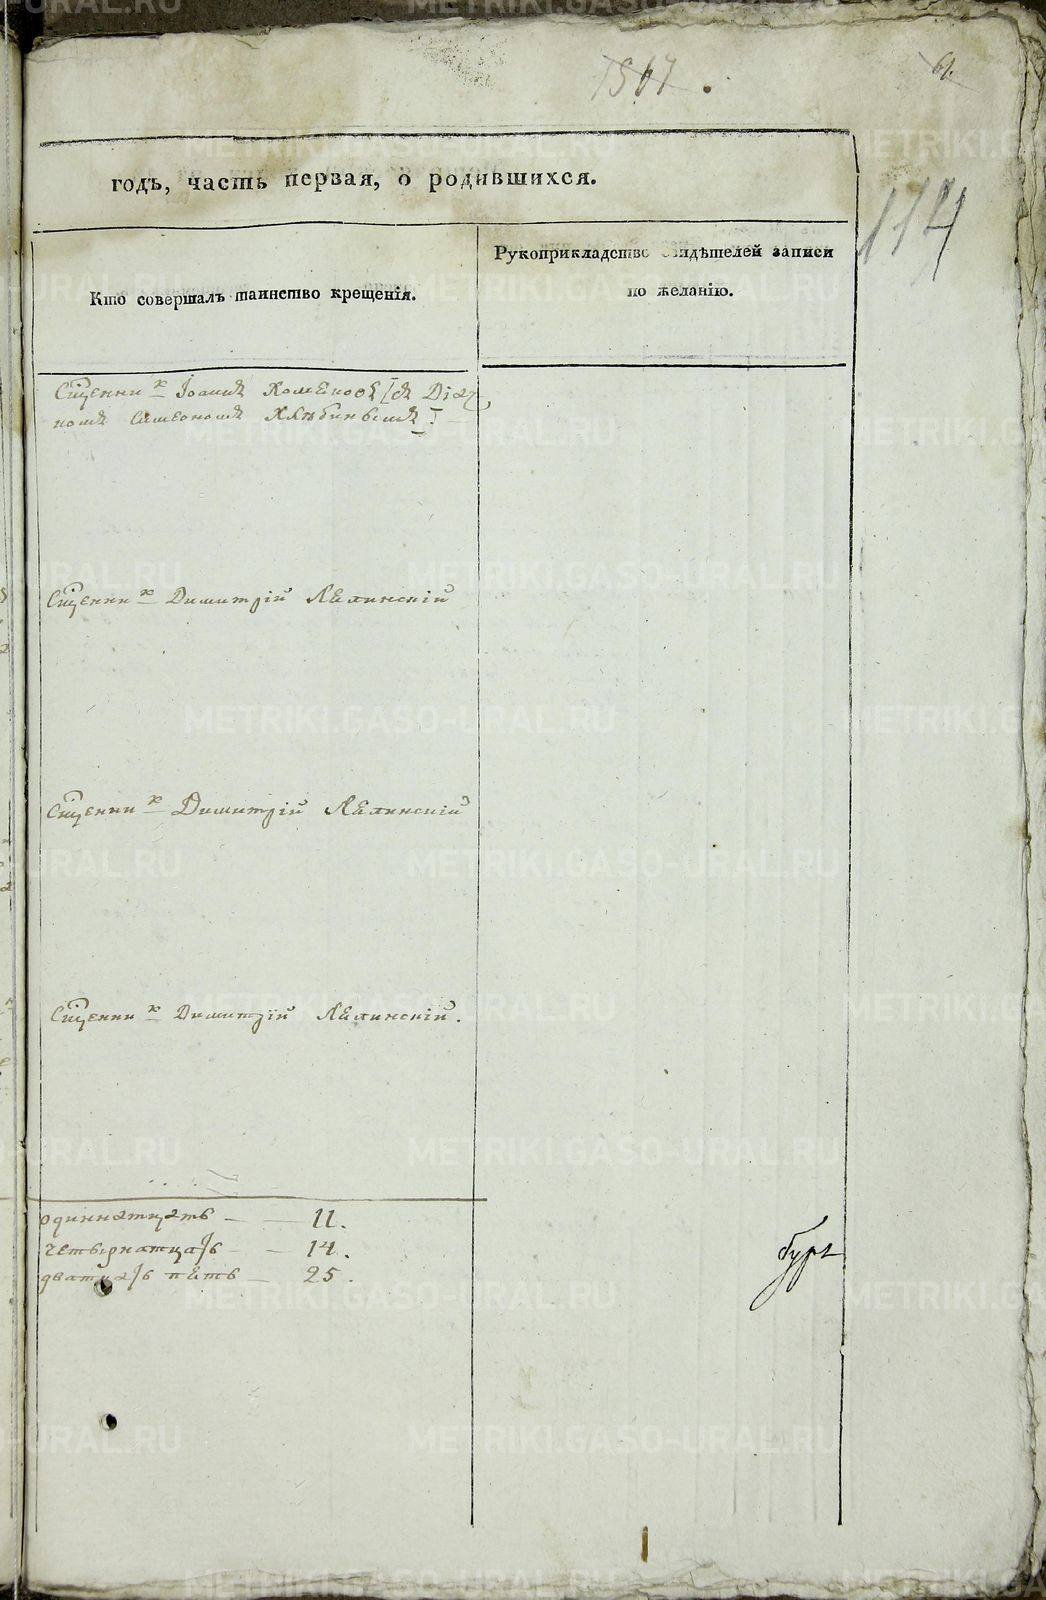 1867.
61.
114
годъ, часть первая, о родившихся.
Кто совершалъ таинство крещенія.
Рукоприкладство свидѣтелей записи
по желанію.
Сщенникъ Іоаннъ Хоменовъ [съ Діа
номъ Симеономъ Хлѣбинымъ].
Сщенникъ Димитрій Ляпинскій
Сщенникъ Димитрій Ляпинскій
Сщенникъ Димитрій Ляпинскій.
одиннатцать — 11.
четырнатцать — 14.
дватцать пять — 25.
METRIKI.GASO-URAL.RU